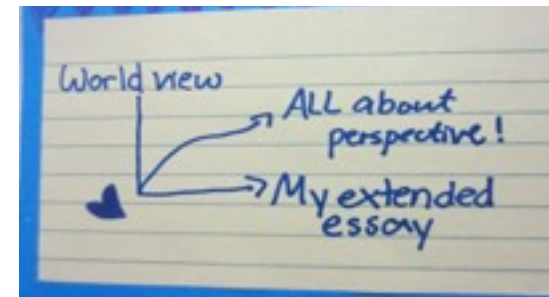 World view
ALL about
perspective!
My extended
essay